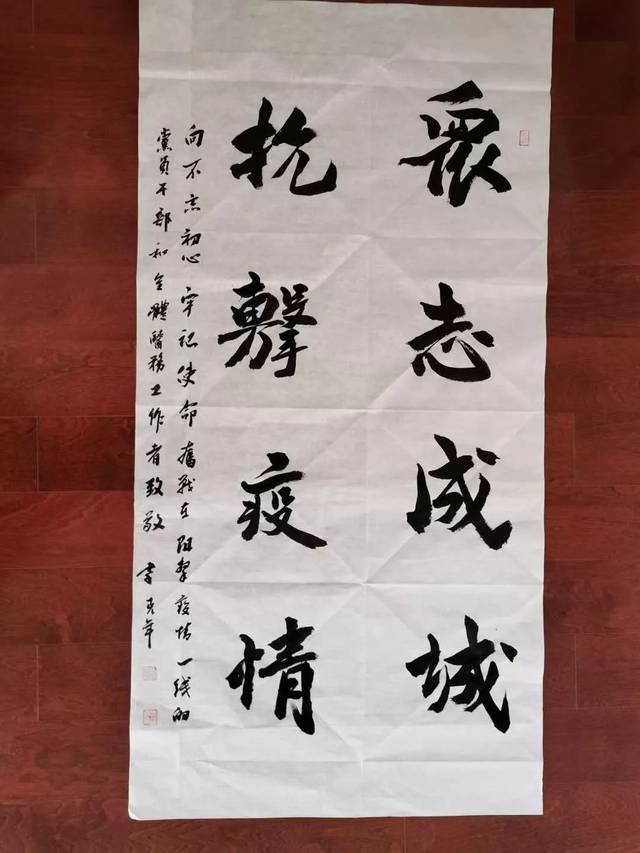 衆志成城
抗擊疫情
向不忘初心牢记使命奮战在阻擊疫情一线的
黨員干部和全體醫務工作者致敬